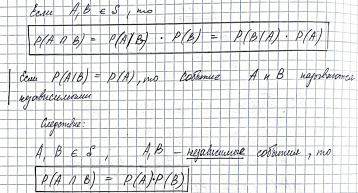 Если A, B ∈ S, то
P(A ∩ B) = P(A|B) · P(B) = P(B|A) · P(A)
Если P(A|B) = P(A), то событие A и B называются
независимыми
Следствие:
A, B ∈ S, A, B - независимые события, то
P(A ∩ B) = P(A)·P(B)